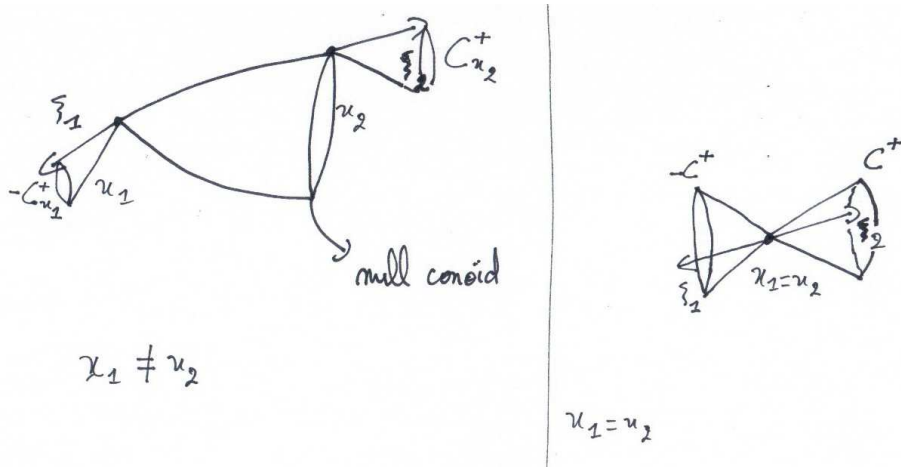 ξ₁
-C⁺ₓ₁
x₁
ξ₂
C⁺ₓ₂
x₂
null conoïd
x₁ ≠ x₂
-C⁺
C⁺
ξ₂
ξ₁
x₁=x₂
x₁=x₂